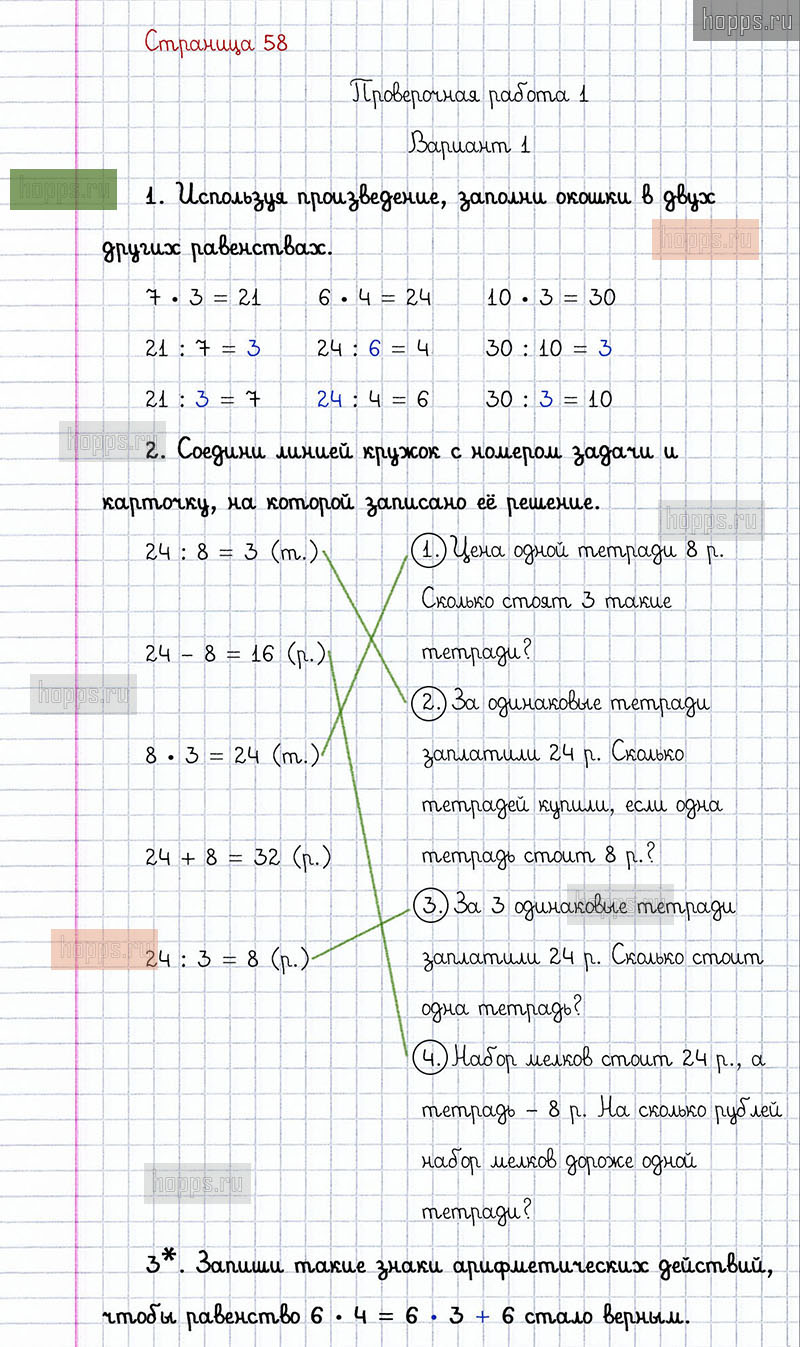 hopps.ru
Страница 58
Проверочная работа 1
Вариант 1
hopps.ru
1. Используя произведение, заполни окошки в двух
hopps.ru
других равенствах.
7 · 3 = 21 6 · 4 = 24 10 · 3 = 30
21 : 7 = 3 24 : 6 = 4 30 : 10 = 3
21 : 3 = 7 24 : 4 = 6 30 : 3 = 10
hopps.ru
2. Соедини линией кружок с номером задачи и
карточку, на которой записано её решение.
hopps.ru
24 : 8 = 3 (т.) 1. Цена одной тетради 8 р.
Сколько стоят 3 такие
24 – 8 = 16 (р.) тетради?
hopps.ru
2. За одинаковые тетради
8 · 3 = 24 (т.) заплатили 24 р. Сколько
тетрадей купили, если одна
24 + 8 = 32 (р.) тетрадь стоит 8 р.?
hopps.ru
3. За 3 одинаковые тетради
hopps.ru
24 : 3 = 8 (р.) заплатили 24 р. Сколько стоит
одна тетрадь?
4. Набор мелков стоит 24 р., а
тетрадь – 8 р. На сколько рублей
набор мелков дороже одной
hopps.ru
тетради?
3*. Запиши такие знаки арифметических действий,
чтобы равенство 6 · 4 = 6 · 3 + 6 стало верным.